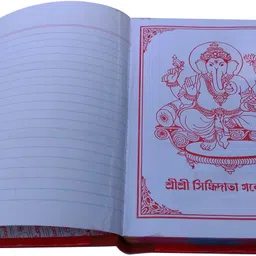 শ্রীশ্রী সিদ্ধিদাতা